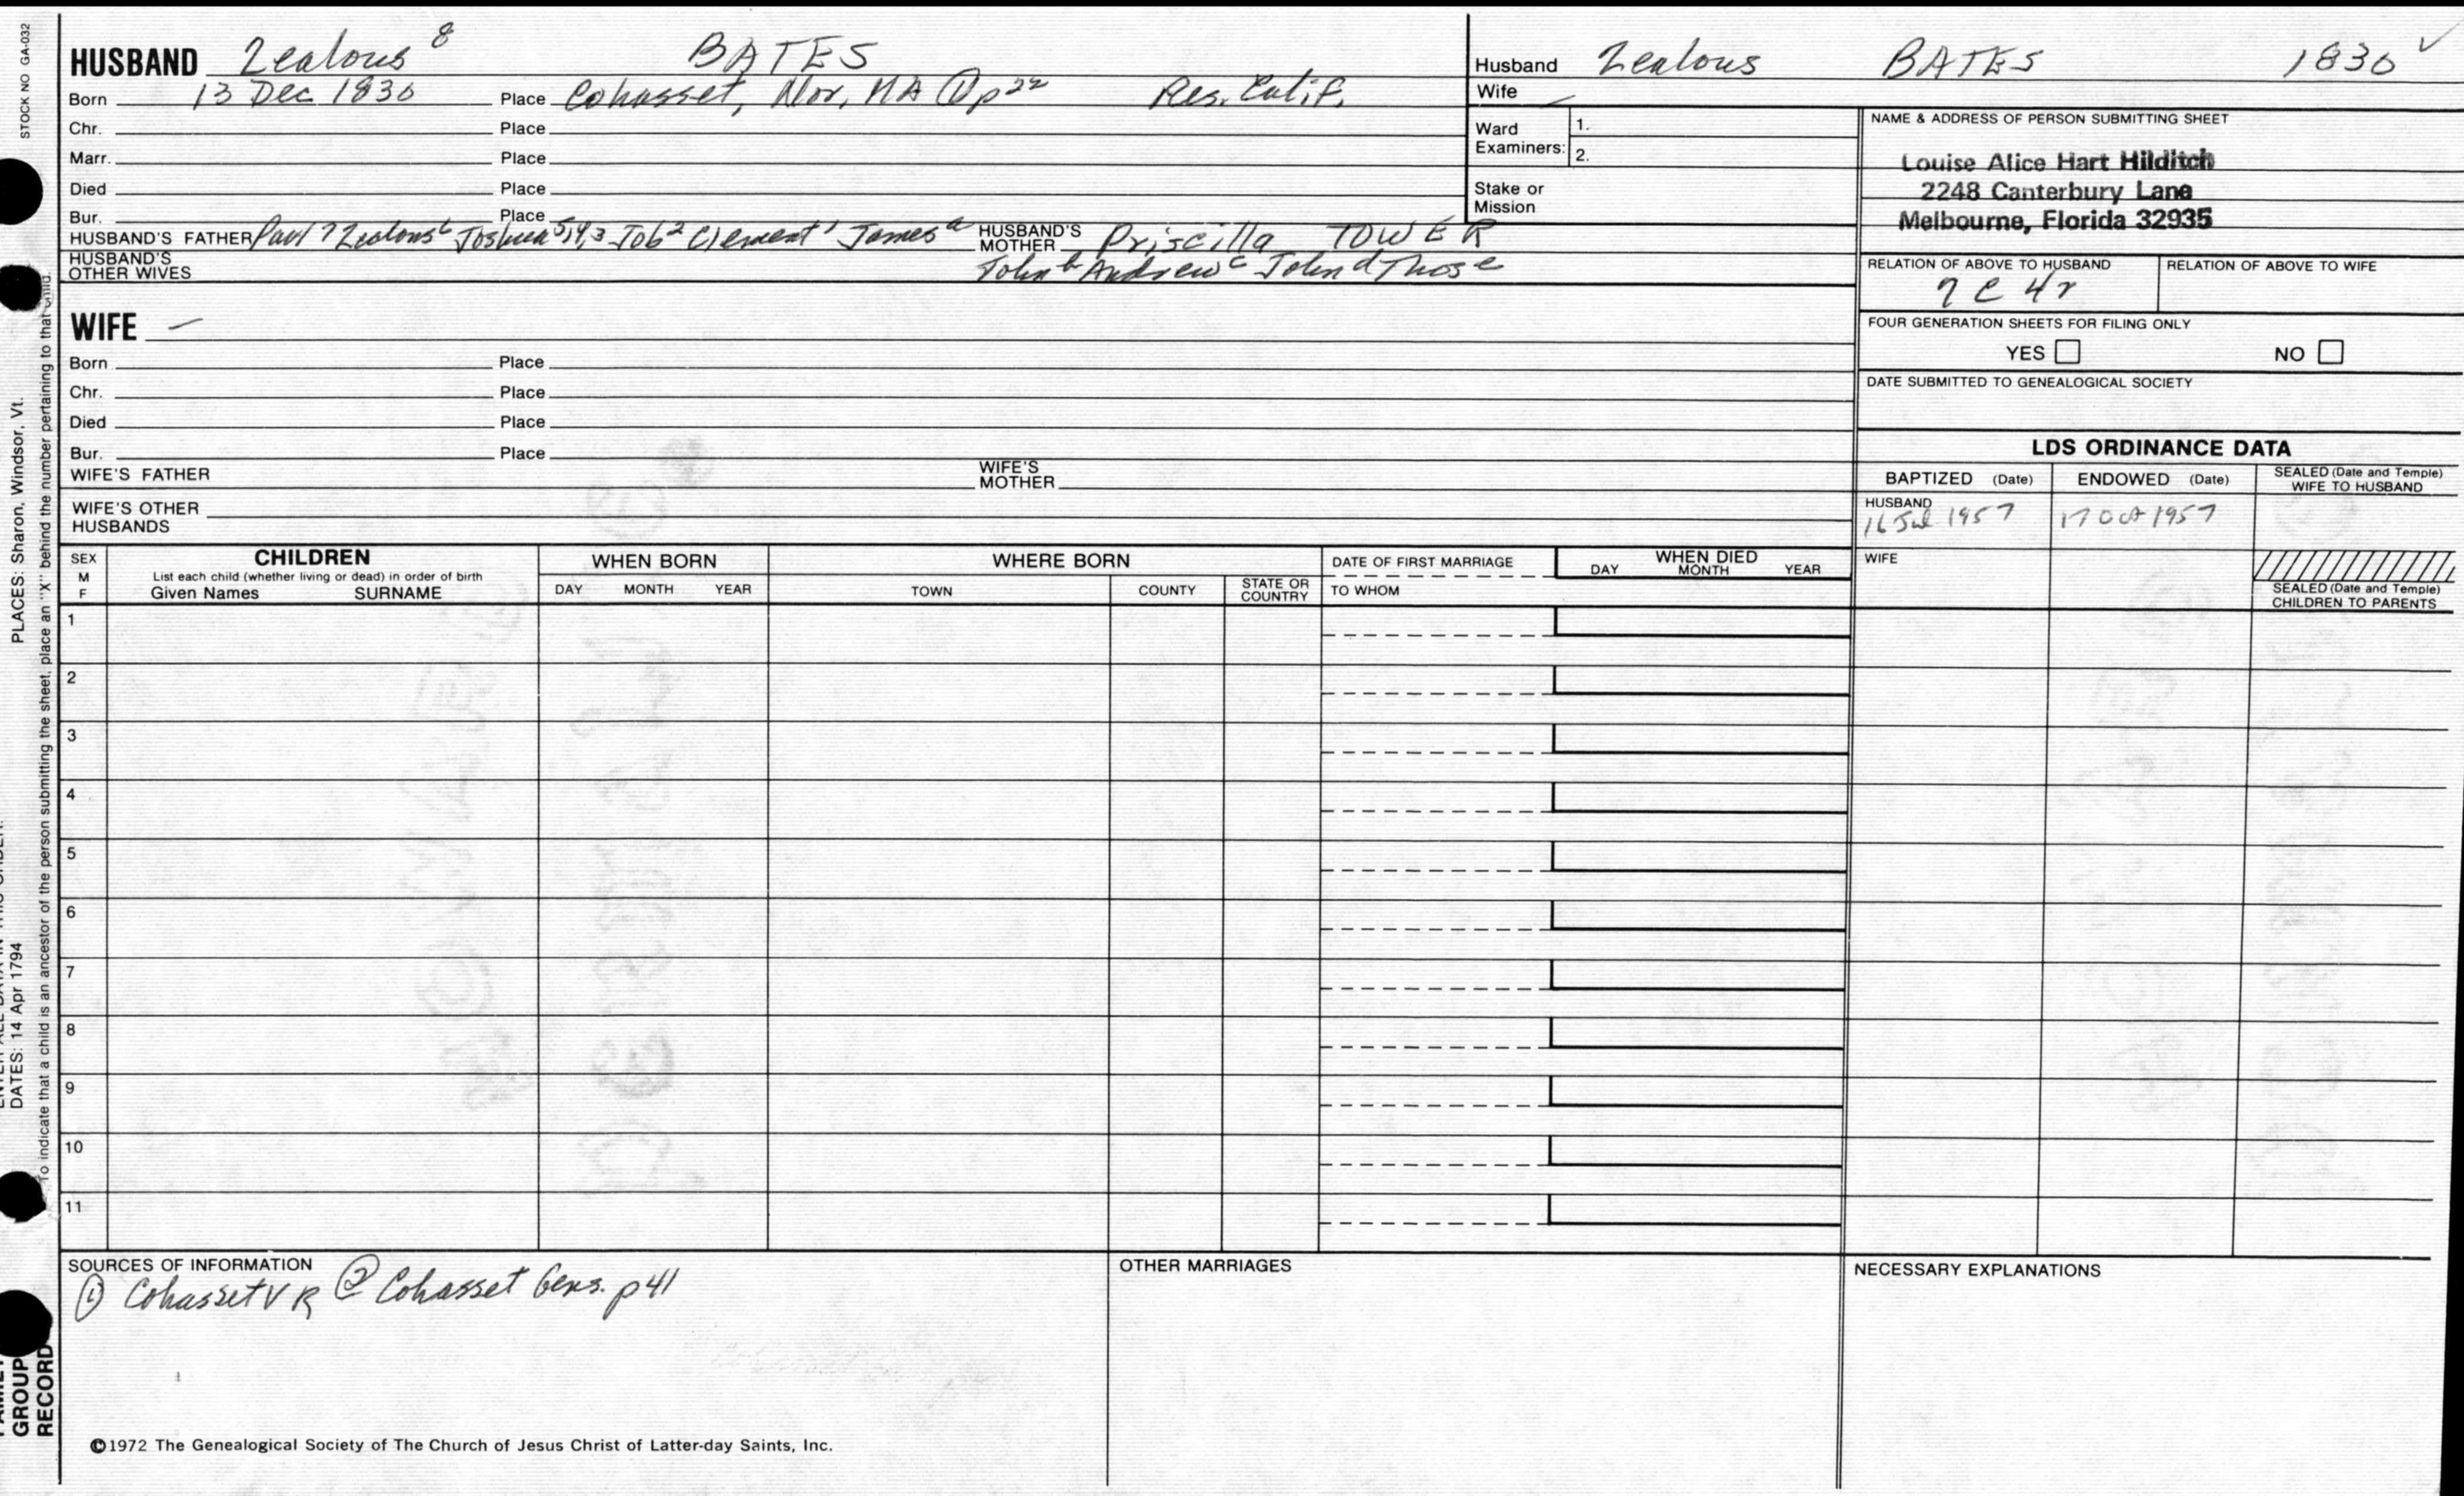 STOCK NO GA-032
HUSBAND Zealous 8 BATES
Born 13 Dec 1830 Place Cohasset, Nor, MA ① p 22 Res. Calif.
Chr. Place
Marr. Place
Died Place
Bur. Place
HUSBAND'S FATHER Paul 7 Zealous 6 Joshua 5,4,3 Job 2 Clement 1 James a HUSBAND'S MOTHER Priscilla TOWER
HUSBAND'S OTHER WIVES John b Andrew c John d Thos e
Husband Zealous BATES 1830 ✓
Wife
Ward Examiners: 1.
2.
Stake or Mission
NAME & ADDRESS OF PERSON SUBMITTING SHEET
Louise Alice Hart Hilditch
2248 Canterbury Lane
Melbourne, Florida 32935
RELATION OF ABOVE TO HUSBAND RELATION OF ABOVE TO WIFE
7 C 4r
FOUR GENERATION SHEETS FOR FILING ONLY
YES NO
DATE SUBMITTED TO GENEALOGICAL SOCIETY
WIFE —
Born Place
Chr. Place
Died Place
Bur. Place
WIFE'S FATHER WIFE'S MOTHER
WIFE'S OTHER HUSBANDS
LDS ORDINANCE DATA
BAPTIZED (Date) ENDOWED (Date) SEALED (Date and Temple) WIFE TO HUSBAND
HUSBAND
16 Jul 1957 17 Oct 1957
WIFE
SEALED (Date and Temple) CHILDREN TO PARENTS
SEX M F
CHILDREN
List each child (whether living or dead) in order of birth
Given Names SURNAME
WHEN BORN
DAY MONTH YEAR
WHERE BORN
TOWN COUNTY STATE OR COUNTRY
DATE OF FIRST MARRIAGE
TO WHOM
WHEN DIED
DAY MONTH YEAR
1
2
3
4
5
6
7
8
9
10
11
SOURCES OF INFORMATION
① Cohasset VR ② Cohasset Gens. p 41
OTHER MARRIAGES
NECESSARY EXPLANATIONS
©1972 The Genealogical Society of The Church of Jesus Christ of Latter-day Saints, Inc.
PLACES: Sharon, Windsor, Vt.
DATES: 14 Apr 1794
To indicate that a child is an ancestor of the person submitting the sheet, place an "X" behind the number pertaining to that child.
GROUP
RECORD